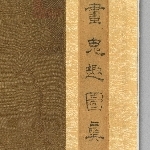 畫鬼趣圖真